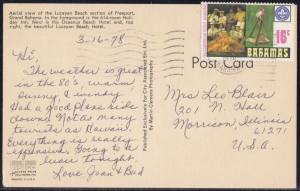 Aerial view of the Lucayan Beach section of Freeport,
Grand Bahama. In the foreground is the 614-room Holi-
day Inn. Next is the Oceanus Beach Hotel and, top
right, the beautiful Lucayan Beach Hotel.
3-16-78
Hi,
The weather is great
in the 80's & warm
sunny & windy
Had a good plane ride
down. Not as many
tourists as Hawaii.
Everything is really
expensive. Going to a
luau tonight.
Love Joan & Bud
Post Card
16c
BAHAMAS
Mrs Leo Blair
201 N. Hall
Morrison, Illinois
61271
U.S.A.